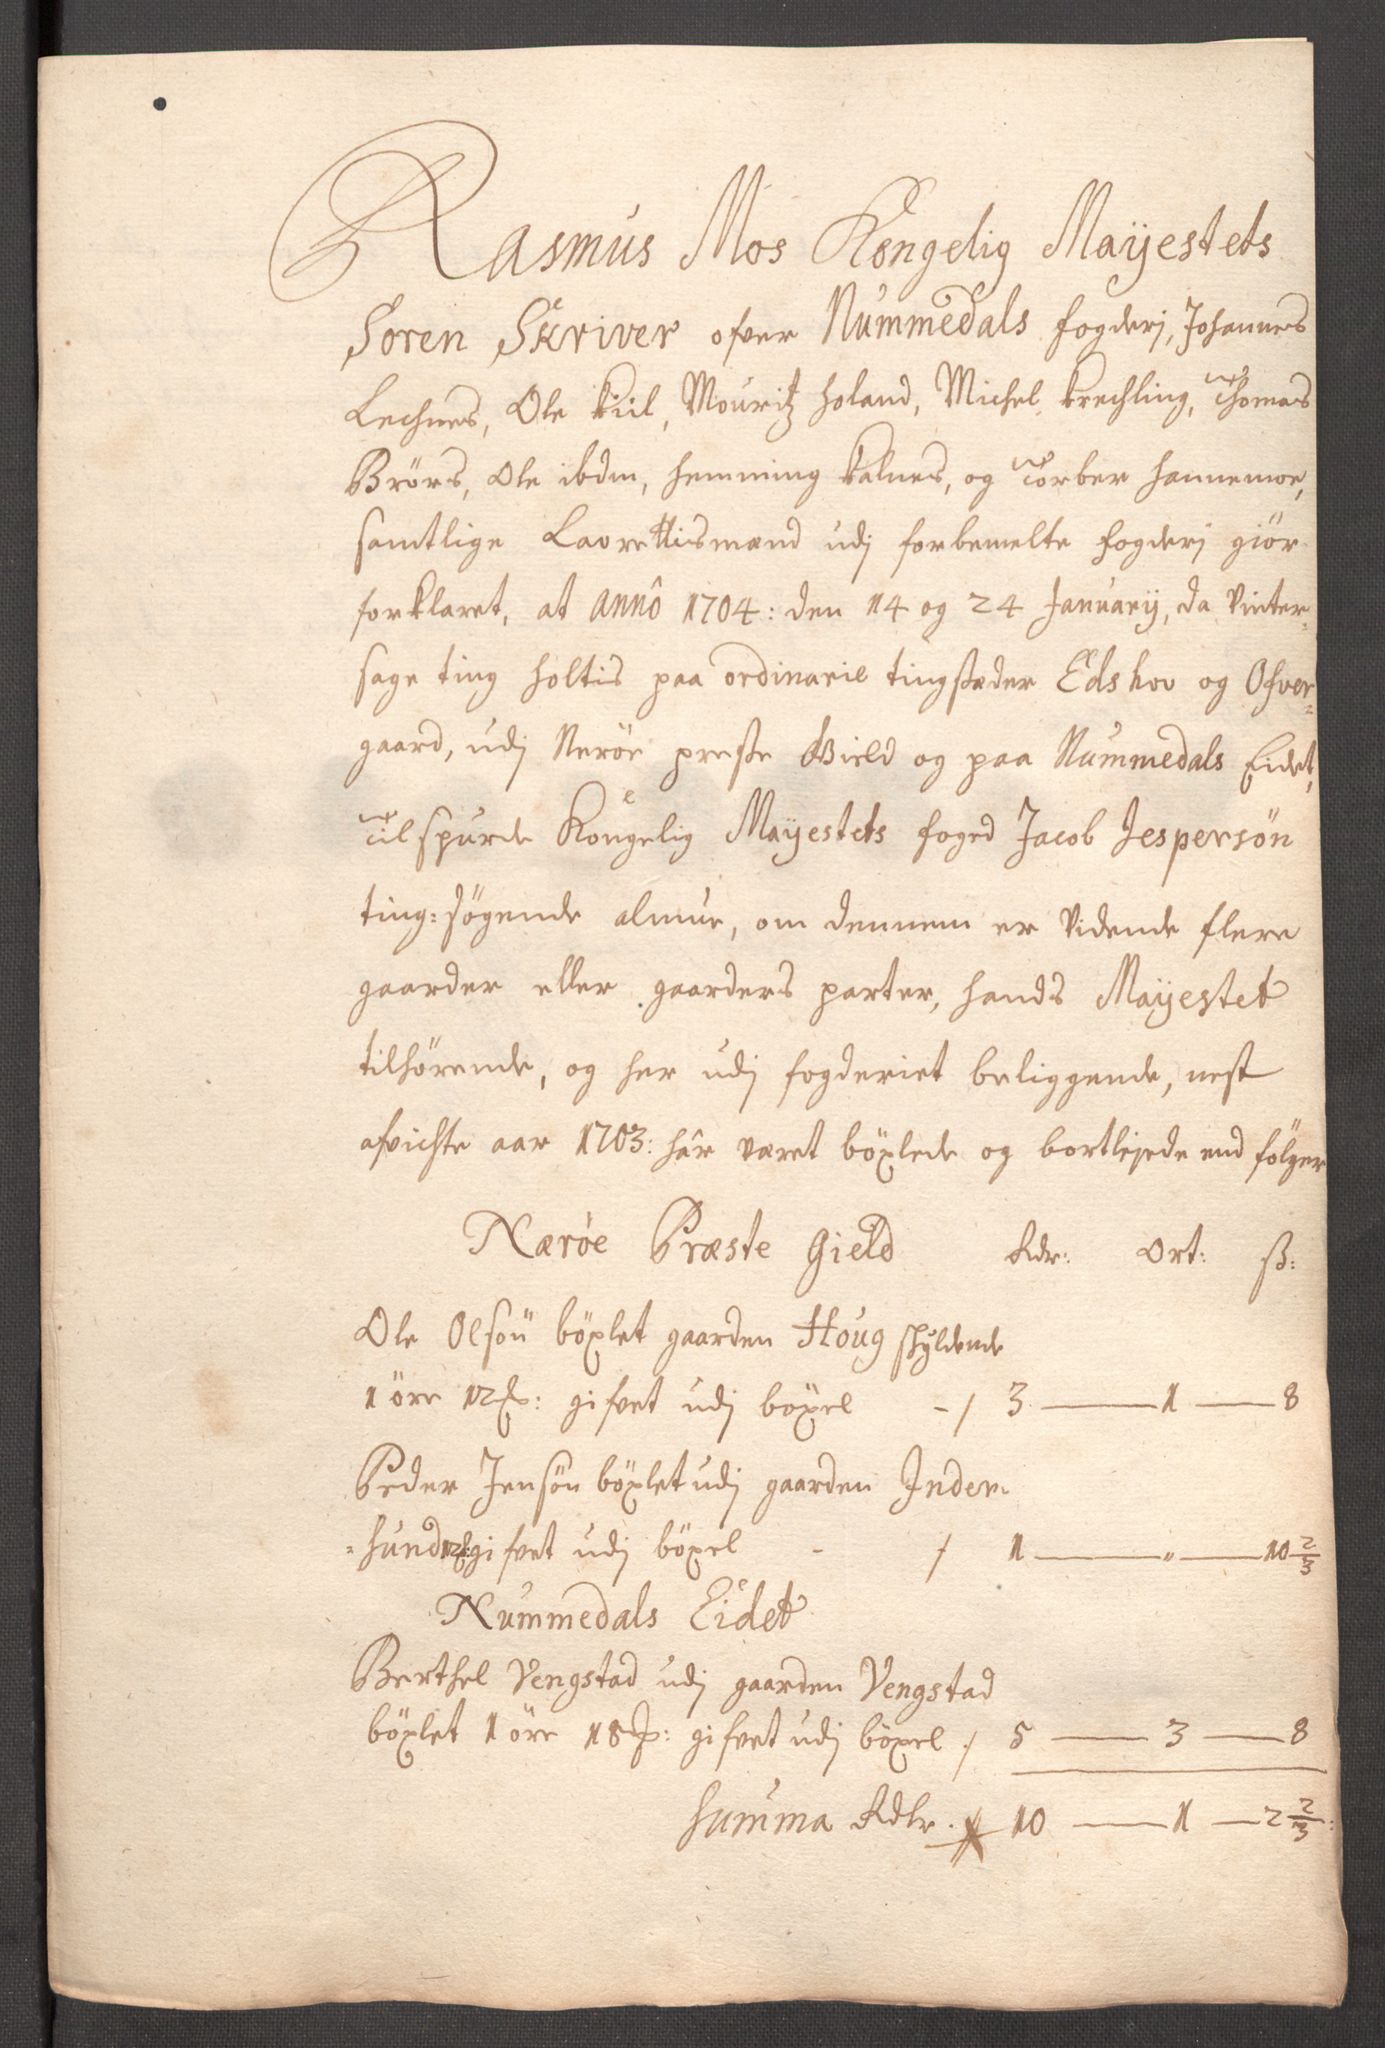 Rasmus Mos Kongelig Maÿestets
Soren Skriver ofver Nummedals fogderj, Johannes
Lechnes, Ole Kiil, Mouritz Holand, Michel Krechling, Thomas
Brörs, Ole ibdm, Hemming Kalnes, og Torber Hannemoe,
samtlige Laurettismænd udj forbemelte fogderj giör
forklaret, at Anno 1704: den 14 og 24 Januarij, da Vinter-
sage ting holtis paa ordinarie tingstæder Edshov og Ofver-
gaard, udj Neröe preste Gield og paa Nummedals Eidet,
Tilspurde Kongelig Maÿestets foged Jacob Jespersön
ting:sögende almue, om dennem er Vidende flere
gaarder eller gaarders parter, hands Maÿestet
tilhörende, og her udj fogderiet beliggende, nest
afvichte aar 1703: hâr været böxlede og bortlejede end fölger
Næröe Præste Gield Rdr: Ort: ß:
Ole Olsön böxlet gaarden Houg skyldende
1 öre 12 ℔: gifvet udj böxel - / 3 — 1 — 8
Peder Jensön böxlet udj gaarden Inder-
=hund 12 ℔: gifvet udj böxel - / 1 — " — 10 2/3
Nummedals Eidet
Berthel Vengstad udj gaarden Vengstad
böxlet 1 öre 18 ℔: gifvet udj böxel / 5 — 3 — 8
Summa Rdlr. 10 — 1 — 2 2/3: